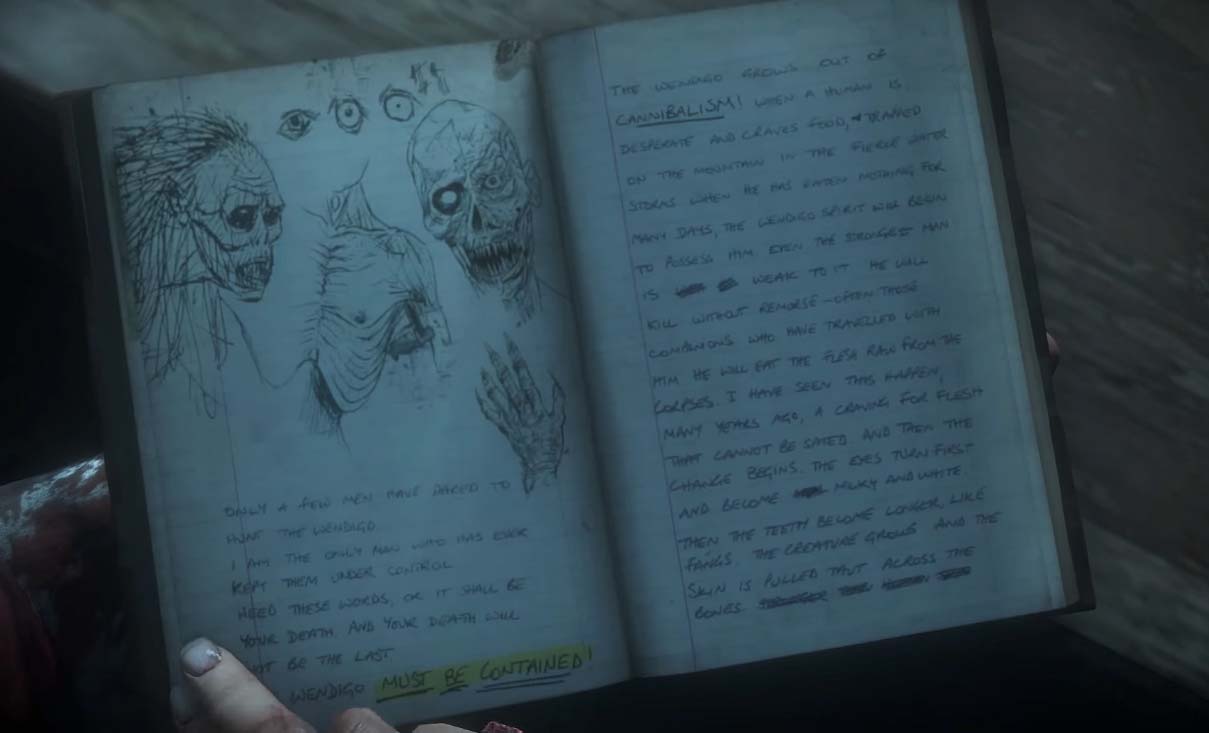 ONLY A FEW MEN HAVE DARED TO
HUNT THE WENDIGO
I AM THE ONLY MAN WHO HAS EVER
KEPT THEM UNDER CONTROL
HEED THESE WORDS, OR IT SHALL BE
YOUR DEATH. AND YOUR DEATH WILL
NOT BE THE LAST.
WENDIGO MUST BE CONTAINED!
THE WENDIGO GROWS OUT OF
CANNIBALISM! WHEN A HUMAN IS
DESPERATE AND CRAVES FOOD, & TRAPPED
ON THE MOUNTAIN IN THE FIERCE WINTER
STORMS WHEN HE HAS EATEN NOTHING FOR
MANY DAYS, THE WENDIGO SPIRIT WILL BEGIN
TO POSSESS HIM EVEN THE STRONGEST MAN
IS WEAK TO IT HE WILL
KILL WITHOUT REMORSE - OFTEN THOSE
COMPANIONS WHO HAVE TRAVELLED WITH
HIM HE WILL EAT THE FLESH RAW FROM THE
CORPSES. I HAVE SEEN THIS HAPPEN,
MANY YEARS AGO, A CRAVING FOR FLESH
THAT CANNOT BE SATED AND THEN THE
CHANGE BEGINS. THE EYES TURN FIRST
AND BECOME MILKY AND WHITE
THEN THE TEETH BECOME LONGER, LIKE
FANGS, THE CREATURE GROWS AND THE
SKIN IS PULLED TAUT ACROSS THE
BONES.